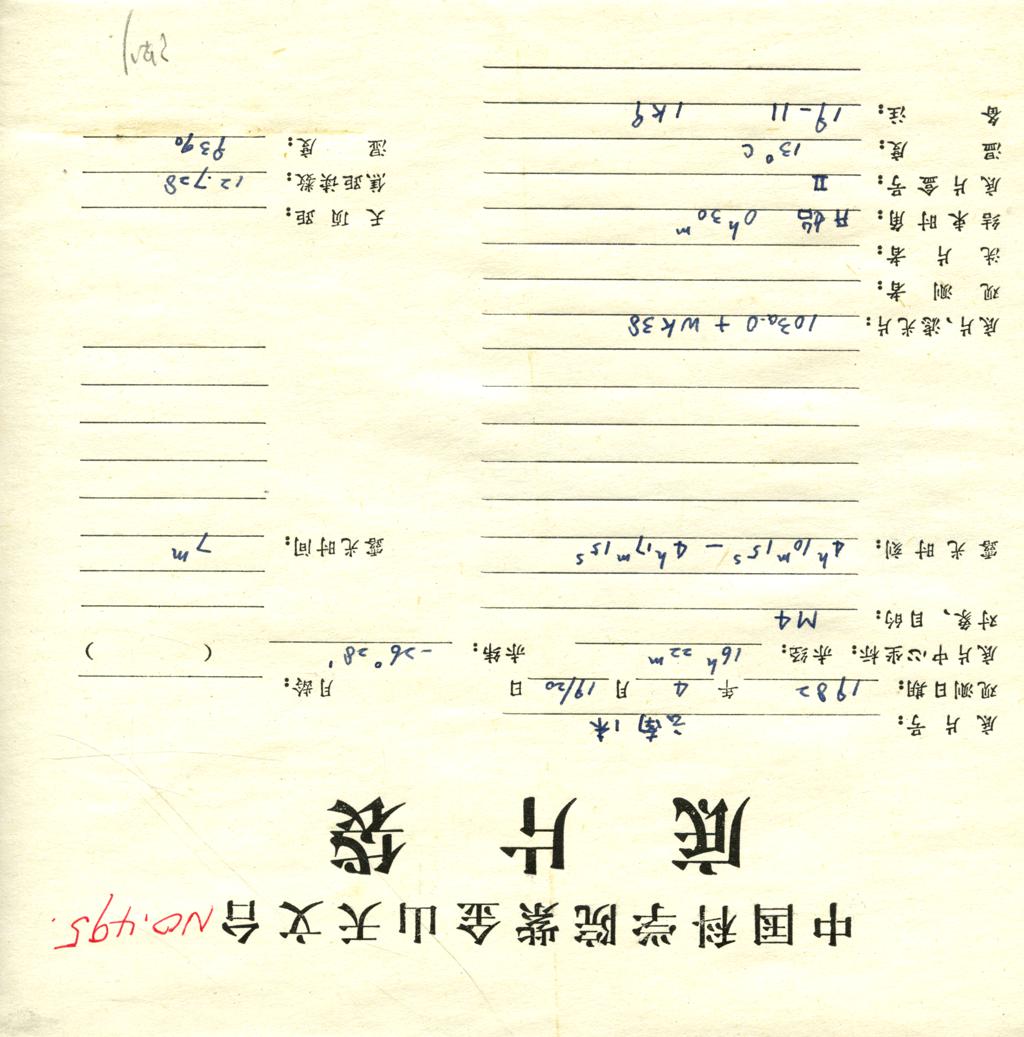 中国科学院紫金山天文台 NO.495.
底片袋
底片号: 云南1米
观测日期: 1982 年 4 月 19/20 日 月龄:
底片中心坐标: 赤经: 16ʰ22ᵐ 赤纬: -26°28′ ( )
对象、目的: M4
露光时刻: 4ʰ10ᵐ15ˢ — 4ʰ17ᵐ15ˢ 露光时间: 7ᵐ
底片、滤光片: 103a-O + WK38
观测者:
洗片者:
结束时角: 开始 0ʰ30ᵐ 天顶距:
底片盒号: II 焦距读数: 12.728
温度: 13°C 湿度: 93%
备注: 19-11 1K9